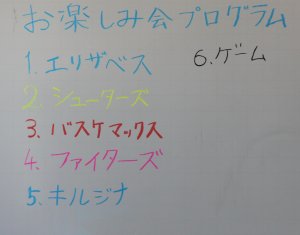 お楽しみ会プログラム
1. エリザベス
2. シューターズ
3. バスケマックス
4. ファイターズ
5. キルジナ
6. ゲーム